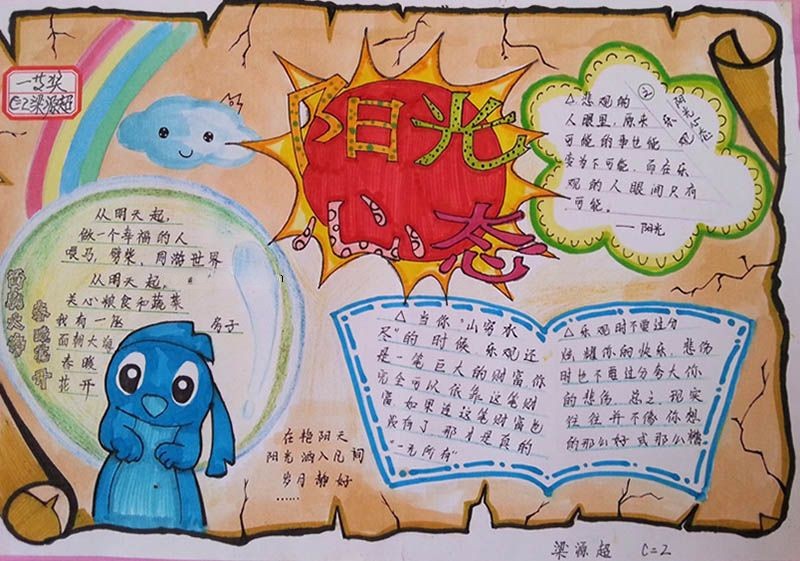 一等奖
C=2梁源超
阳光
心态
从明天起，
做一个幸福的人
喂马，劈柴，周游世界
从明天起，
关心粮食和蔬菜
我有一所 房子
面朝大海
春暖
花开
面朝大海
春暖花开
△悲观的
人眼里，原来
可能的事也能
变为不可能，而在乐
观的人眼间只有
可能。
——阳光
△当你"山穷水
尽"的时候，乐观还
是一笔巨大的财富你
完全可以依靠这笔财
富，如果连这笔财富也
没有了，那才是真的
"一无所有"
△乐观时不要过分
炫耀你的快乐，悲伤
时也不要过分夸大你
的悲伤，总之，现实
往往并不像你想
的那么好 或那么糟
在艳阳天
阳光洒入凡间
岁月静好
……
梁源超 C=2